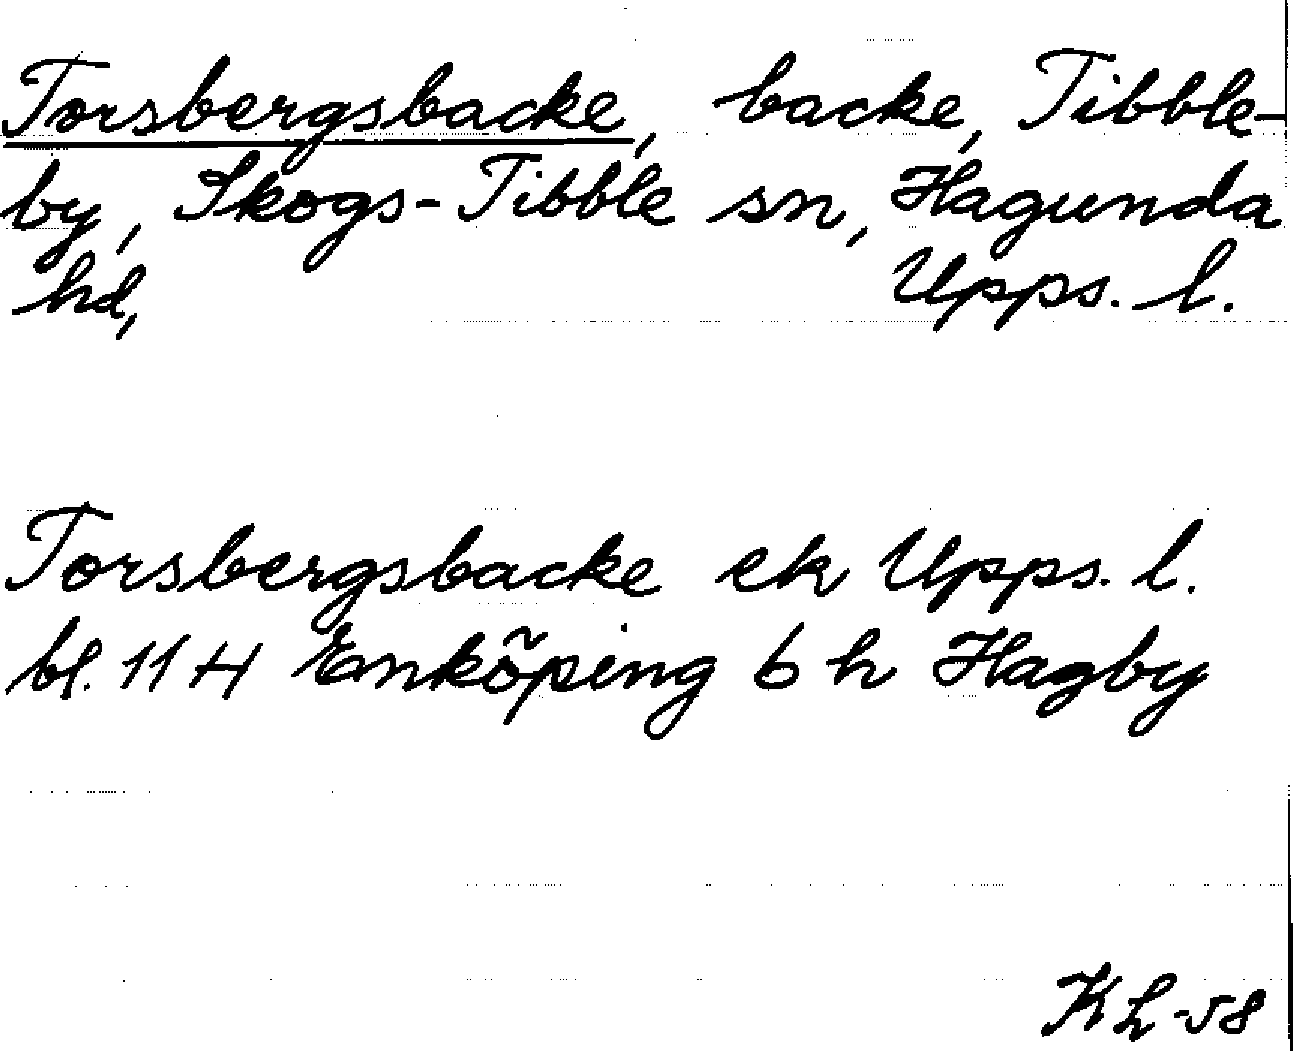 Torsbergsbacke, backe, Tibble-
by, Skogs-Tibble sn, Hagunda
hd, Upps. l.
Torsbergsbacke ek Upps. l.
bl. 11 H Enköping 6 h Hagby
KL-58